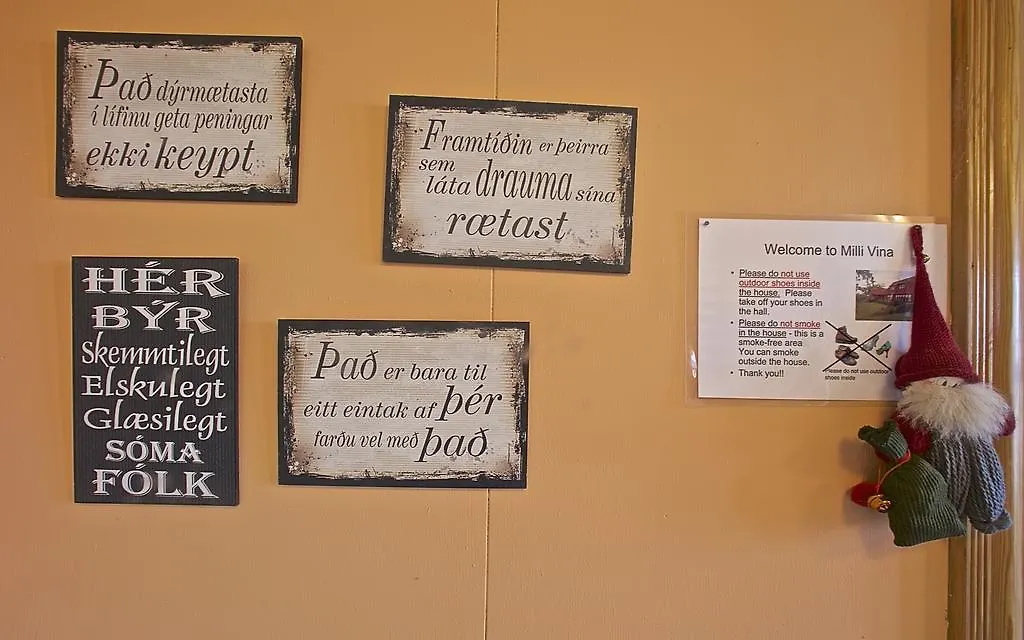 Það dýrmætasta
í lífinu geta peningar
ekki keypt
Framtíðin er þeirra
sem
láta drauma sína
rætast
HÉR
BÝR
Skemmtilegt
Elskulegt
Glæsilegt
SÓMA
FÓLK
Það er bara til
eitt eintak af þér
farðu vel með það
Welcome to Milli Vina
• Please do not use
outdoor shoes inside
the house. Please
take off your shoes in
the hall.
• Please do not smoke
in the house - this is a
smoke-free area
You can smoke
outside the house.
• Thank you!!
Please do not use outdoor
shoes inside